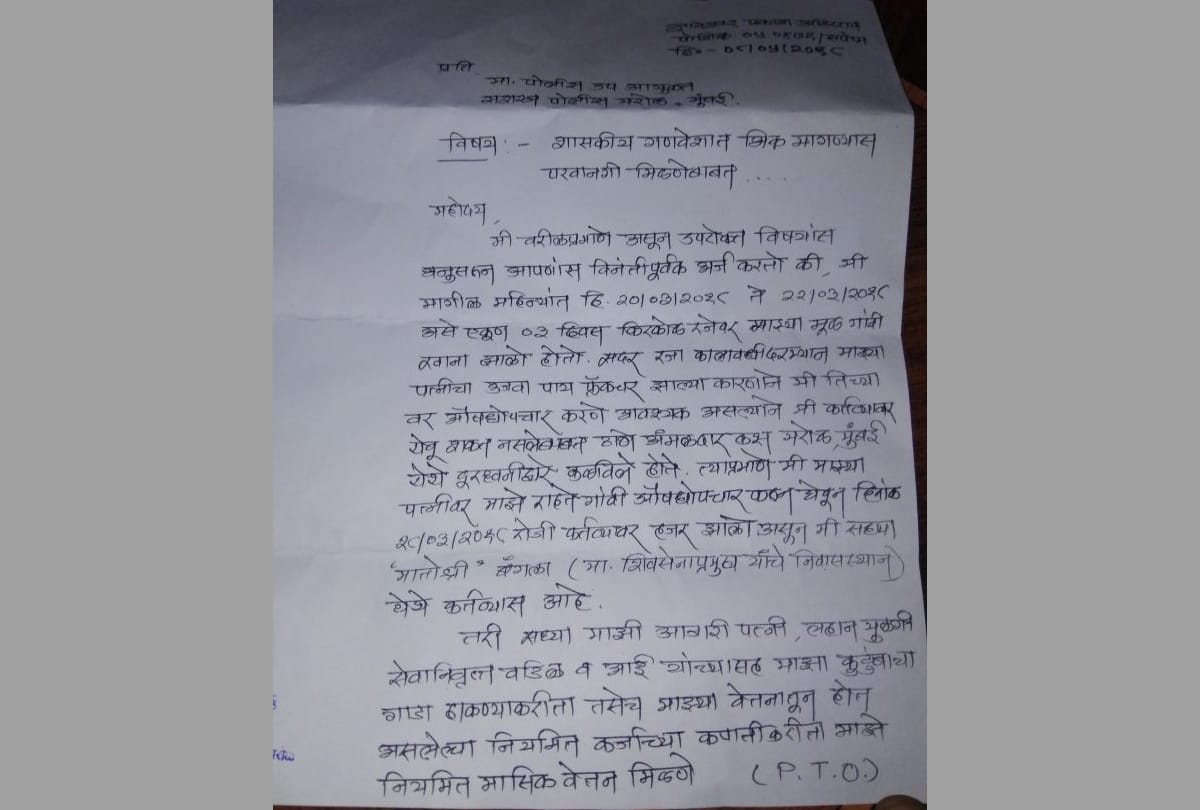 दि०-०८/०५/२०१८
प्रति,
मा. पोलीस उप आयुक्त
सशस्त्र पोलीस मरोळ - मुंबई.
विषय :- शासकीय गणवेशात भिक मागण्यास
परवानगी मिळणेबाबत .....
महोदय,
मी वरीलप्रमाणे असून उपरोक्त विषयांस
अनुसरून आपणांस विनंतीपूर्वक अर्ज करतो की, मी
मागील महिन्यांत दि. २०/०३/२०१८ ते २२/०३/२०१८
असे एकूण ०३ दिवस किरकोळ रजेवर माझ्या मूळ गांवी
रवाना झालो होतो. सदर रजा कालावधीदरम्यान माझ्या
पत्नीचा उजवा पाय फ्रॅक्चर झाल्या कारणाने मी तिच्या
वर औषधोपचार करणे आवश्यक असल्याने मी कर्तव्यावर
येवू शकत नसलेबाबत ठाणे अंमलदार कक्ष मरोळ, मुंबई
येथे दूरध्वनीद्वारे कळविले होते. त्याप्रमाणे मी माझ्या
पत्नीवर माझे राहते गांवी औषधोपचार करून घेवून दिनांक
२८/०३/२०१८ रोजी कर्तव्यावर हजर झालो असून मी सध्या
"मातोश्री" बंगला (मा. शिवसेनाप्रमुख यांचे निवासस्थान)
येथे कर्तव्यास आहे.
तरी सध्या माझी आजारी पत्नी, लहान मुलगी
सेवानिवृत्त वडिळ व आई यांच्यासह माझा कुटुंबाचा
गाडा हाकण्याकरीता तसेच माझ्या वेतनातून होत
असलेल्या नियमित कर्जाच्या कपातीकरीता माझे
नियमित मासिक वेतन मिळणे (P.T.O.)